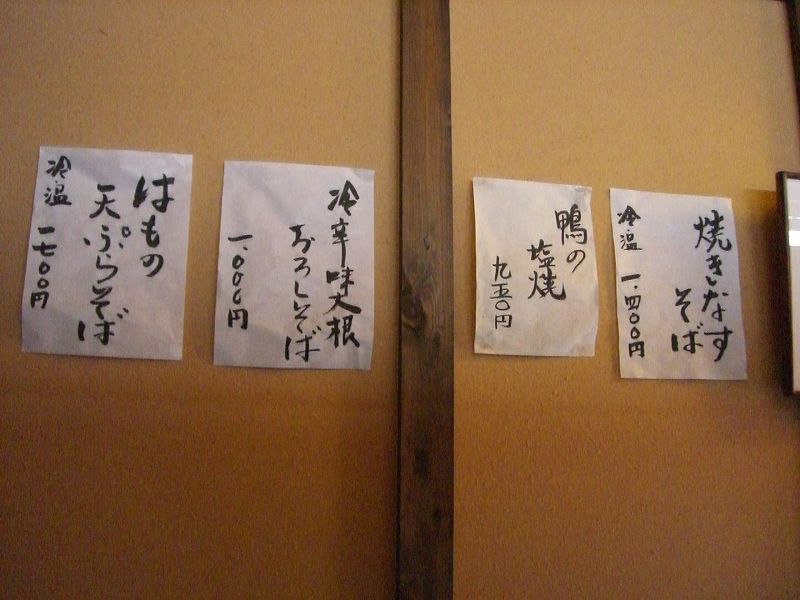 焼きなす
そば
冷温 一、四〇〇円
鴨の
塩焼
九五〇円
冷辛味大根
おろしそば
一、〇〇〇円
はもの
天ぷらそば
冷温 一七〇〇円